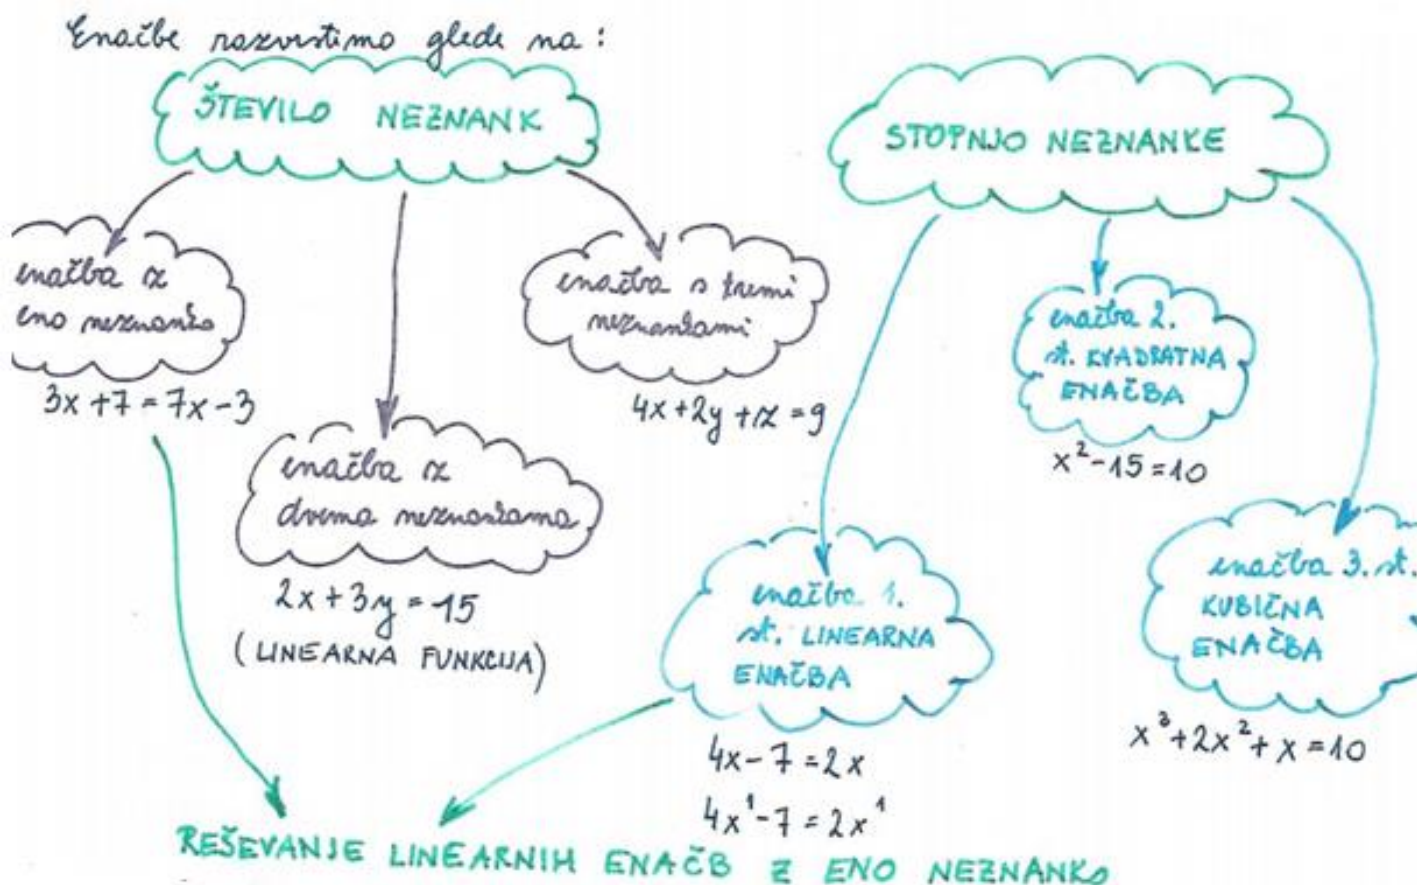 Enačbe razvrstimo glede na:
ŠTEVILO NEZNANK
STOPNJO NEZNANKE
enačba z
eno neznanko
3x+7=7x-3
enačba z
dvema neznankama
2x+3y=15
(LINEARNA FUNKCIJA)
enačba s tremi
neznankami
4x+2y+z=9
enačba 1.
st. LINEARNA
ENAČBA
4x-7=2x
4x¹-7=2x¹
enačba 2.
st. KVADRATNA
ENAČBA
x²-15=10
enačba 3. st.
KUBIČNA
ENAČBA
x³+2x²+x=10
REŠEVANJE LINEARNIH ENAČB Z ENO NEZNANKO